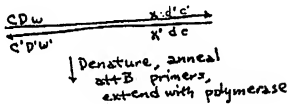 CDw x:d'c'
C'D'w' x' dc
Denature, anneal
attB primers,
extend with polymerase